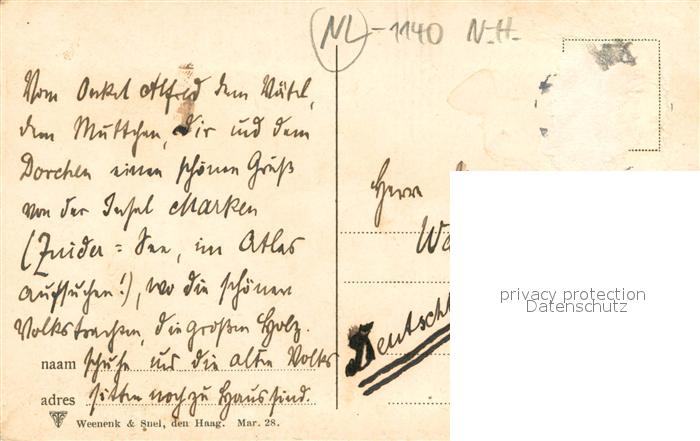 (NL)-1140 N-H.
Vom Onkel Alfred dem Vätel,
dem Muttchen, Dir und dem
Dorchen einen schönen Gruß
von der Insel Marken
(Zuider=See, im Atlas
aufsuchen!), wo die schönen
Volkstrachten, die großen Holz-
naam schuhe und die alten Volks
adres sitten noch zu Haus sind.
Weenenk & Snel, den Haag. Mar. 28.
Herr
Deutschl
privacy protection
Datenschutz